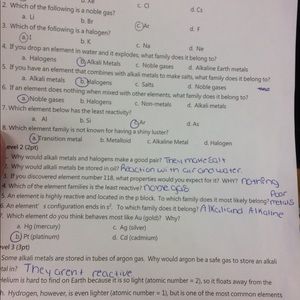 b. Xe
2. Which of the following is a noble gas? c. Cl d. Cs
a. Li b. Br c. Ar
3. Which of the following is a halogen? d. F
a. I b. K c. Na
4. If you drop an element in water and it explodes, what family does it belong to? d. Ne
a. Halogens b. Alkali Metals c. Noble gases d. Alkaline Earth metals
5. If you have an element that combines with alkali metals to make salts, what family does it belong to?
a. Alkali metals b. Halogens c. Salts d. Noble gases
6. If an element does nothing when mixed with other elements, what family does it belong to?
a. Noble gases b. Halogens c. Non-metals d. Alkali metals
7. Which element below has the least reactivity?
a. Al b. Si c. Ar d. As
8. Which element family is not known for having a shiny luster?
a. Transition metal b. Metalloid c. Alkaline Metal d. Halogen
Level 2 (2pt)
Why would alkali metals and halogens make a good pair? They make salt
Why would alkali metals be stored in oil? Reaction with air and water.
3. If you discovered element number 118, what properties would you expect for it? Why? nothing
4. Which of the elements families is the least reactive? noble gas
5. An element is highly reactive and located in the p block. To which family does it most likely belong? Poor metals
6. An element's configuration ends in s². To which family does it belong? Alkali and Alkaline
7. Which element do you think behaves most like Au (gold)? Why?
a. Hg (mercury) c. Ag (silver)
b. Pt (platinum) d. Cd (cadmium)
Level 3 (3pt)
Some alkali metals are traded in stores of oxygen gas. Why would argon be a safe gas to store an alkali
metal in? They arent reactive
Helium is hard to find on Earth because it is so light (atomic number = 2), so it floats away from the
h. Hydrogen, however, is even lighter (atomic number = 1), but is one of the most common elements